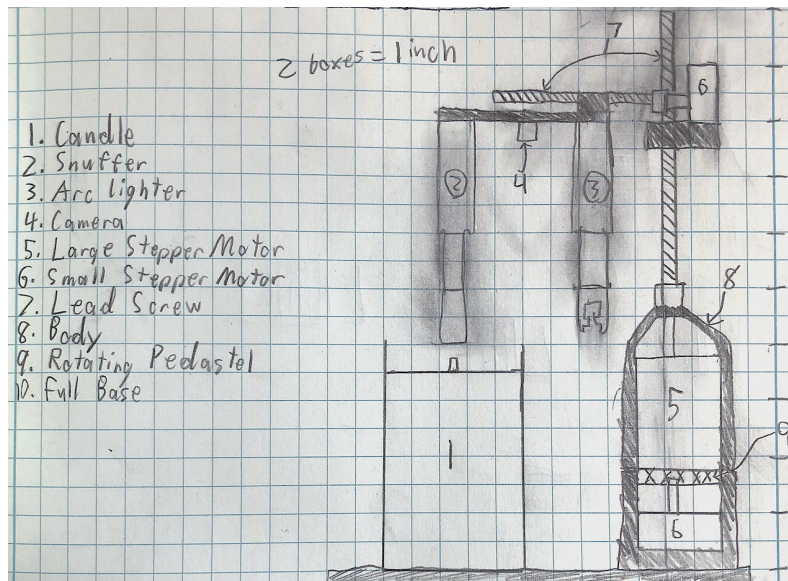 2 boxes = 1 inch
7
6
1. Candle
2. Snuffer
3. Arc lighter
4. Camera
5. Large Stepper Motor
6. Small Stepper Motor
7. Lead Screw
8. Body
9. Rotating Pedastel
10. Full Base
2
4
3
8
1
5
9
6